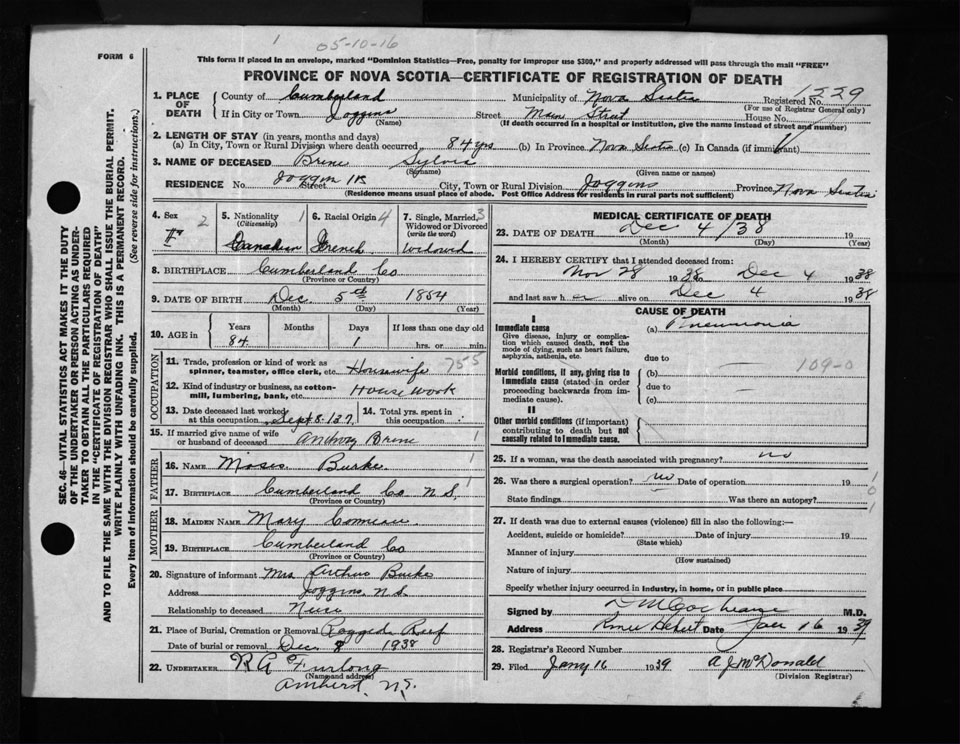 1 05-10-16
FORM 6
This form if placed in an envelope, marked "Dominion Statistics—Free, penalty for improper use $300," and properly addressed will pass through the mail "FREE"
PROVINCE OF NOVA SCOTIA—CERTIFICATE OF REGISTRATION OF DEATH
SEC. 46—VITAL STATISTICS ACT MAKES IT THE DUTY
OF THE UNDERTAKER OR PERSON ACTING AS UNDER-
TAKER TO OBTAIN ALL THE PARTICULARS REQUIRED
IN THE "CERTIFICATE OF REGISTRATION OF DEATH"
AND TO FILE THE SAME WITH THE DIVISION REGISTRAR WHO SHALL ISSUE THE BURIAL PERMIT.
WRITE PLAINLY WITH UNFADING INK. THIS IS A PERMANENT RECORD.
Every item of information should be carefully supplied. (See reverse side for instructions.)
1. PLACE OF DEATH County of Cumberland Municipality of Nova Scotia Registered No. 1229
(For use of Registrar General only)
If in City or Town Joggins Street Main Street House No.
(Name) (If death occurred in a hospital or institution, give the name instead of street and number)
2. LENGTH OF STAY (in years, months and days)
(a) In City, Town or Rural Division where death occurred 84 yrs (b) In Province Nova Scotia (c) In Canada (if immigrant)
3. NAME OF DECEASED Brine Sylvis
(Surname) (Given name or names)
RESIDENCE No. Joggin Street City, Town or Rural Division Joggins Province Nova Scotia
(Residence means usual place of abode. Post Office Address for residents in rural parts not sufficient)
4. Sex 2 5. Nationality 1 6. Racial Origin 4 7. Single, Married, 3
(Citizenship) Widowed or Divorced
(write the word)
F Canadian French Widowed
8. BIRTHPLACE Cumberland Co
(Province or Country)
9. DATE OF BIRTH Dec. 5th 1854
(Month) (Day) (Year)
10. AGE in Years Months Days If less than one day old
84 1 hrs. or min.
OCCUPATION
11. Trade, profession or kind of work as
spinner, teamster, office clerk, etc. Housewife 755
12. Kind of industry or business, as cotton-
mill, lumbering, bank, etc. House Work
13. Date deceased last worked 14. Total yrs. spent in
at this occupation Sept 8-137 this occupation
15. If married give name of wife
or husband of deceased Anthony Brine 1
FATHER
16. NAME Moses Burke 1
17. BIRTHPLACE Cumberland Co N S, 1
(Province or Country)
MOTHER
18. MAIDEN NAME Mary Comeau
19. BIRTHPLACE Cumberland Co
(Province or Country)
20. Signature of informant Mrs Arthur Burke
Address Joggins, N.S.
Relationship to deceased
21. Place of Burial, Cremation or Removal Ragged Reef
Date of burial or removal Dec. 8 1938
22. UNDERTAKER R A Furlong
(Name and address)
Amherst, N.S.
MEDICAL CERTIFICATE OF DEATH
23. DATE OF DEATH Dec 4/38 19
(Month) (Day) (Year)
24. I HEREBY CERTIFY that I attended deceased from:
Nov 28 1938 to Dec 4 1938
and last saw her alive on Dec 4 1938
CAUSE OF DEATH
I
Immediate cause (a) Pneumonia
Give disease, injury or complica-
tion which caused death, not the
mode of dying, such as heart failure,
asphyxia, asthenia, etc. due to
Morbid conditions, if any, giving rise to (b) — 109-0
immediate cause (stated in order due to —
proceeding backwards from im-
mediate cause). (c)
II
Other morbid conditions (if important)
contributing to death but not
causally related to immediate cause.
25. If a woman, was the death associated with pregnancy? no
26. Was there a surgical operation? no Date of operation 19 1
0
State findings Was there an autopsy? 1
27. If death was due to external causes (violence) fill in also the following:—
Accident, suicide or homicide? Date of injury 19
(State which)
Manner of injury
(How sustained)
Nature of injury
Specify whether injury occurred in industry, in home, or in public place
Signed by D M Cochrane M.D.
Address River Hebert Date Jan 16 1939
28. Registrar's Record Number
29. Filed Jany 16 1939 A J McDonald
(Division Registrar)